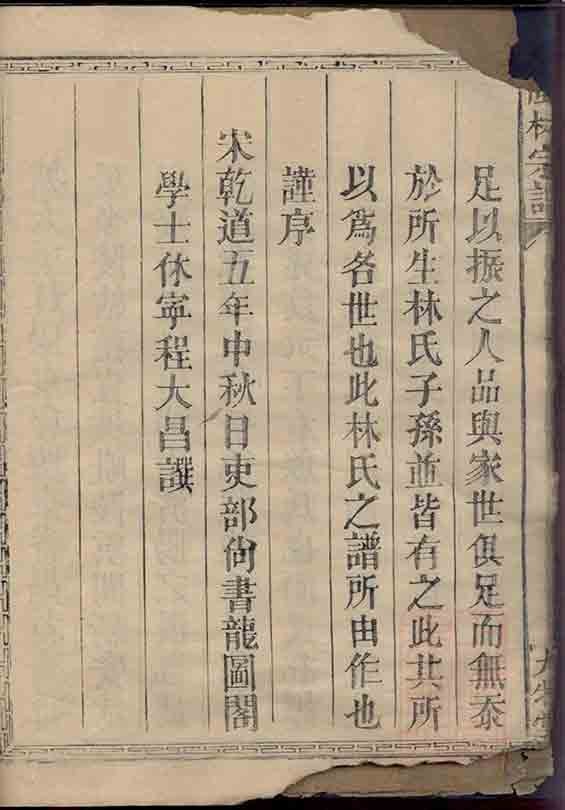 林宗譜
足以振之人品與家世俱足而無忝
於所生林氏子孫並皆有之此其所
以爲名世也此林氏之譜所由作也
謹序
宋乾道五年中秋日吏部尙書龍圖閣
學士休寧程大昌譔